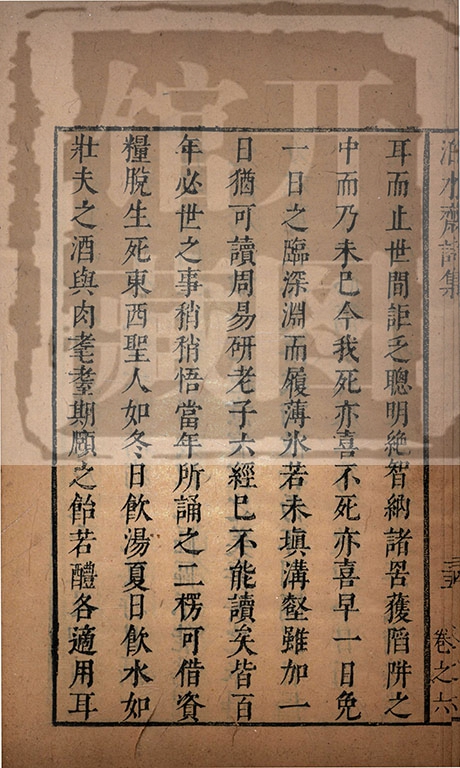 耳而止世間詎乏聰明絶智納諸罟獲陷阱之
中而乃未巳今我死亦喜不死亦喜早一日免
一日之臨深淵而履薄氷若未塡溝壑雖加一
日猶可讀周易研老子六經巳不能讀矣皆百
年必世之事稍稍悟當年所誦之二楞可借資
糧脫生死東西聖人如冬日飮湯夏日飮水如
壯夫之酒與肉耄耋期頤之飴若醴各適用耳
卷之六